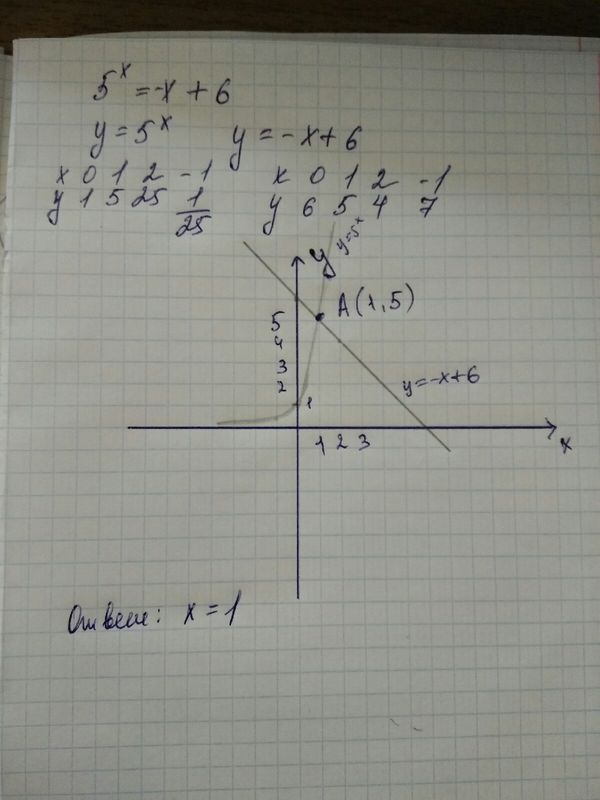 5^x = -x + 6
y = 5^x y = -x + 6
x 0 1 2 -1 x 0 1 2 -1
y 1 5 25 1/25 y 6 5 4 7
y y=5^x
A(1,5)
5
4
3
2
1
y=-x+6
1 2 3 x
Ответ: x = 1